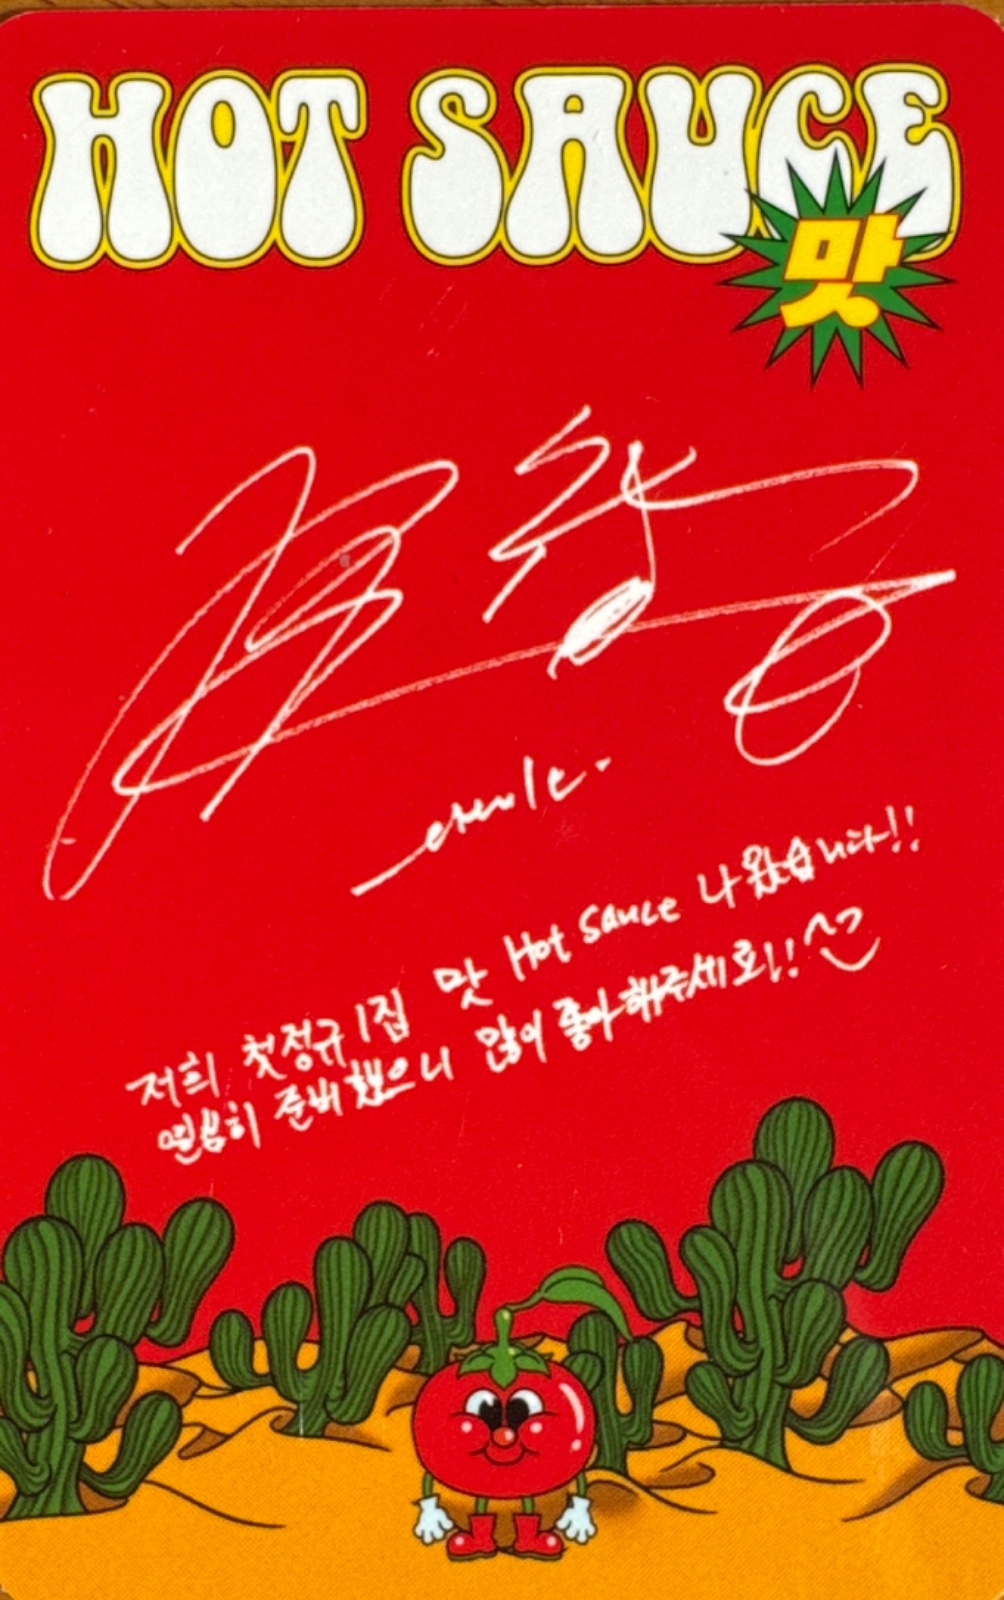 HOT SAUCE
맛
저희 첫 정규 1집 맛 Hot Sauce 나왔습니다!!
열심히 준비했으니 많이 좋아해주세요!! ^^